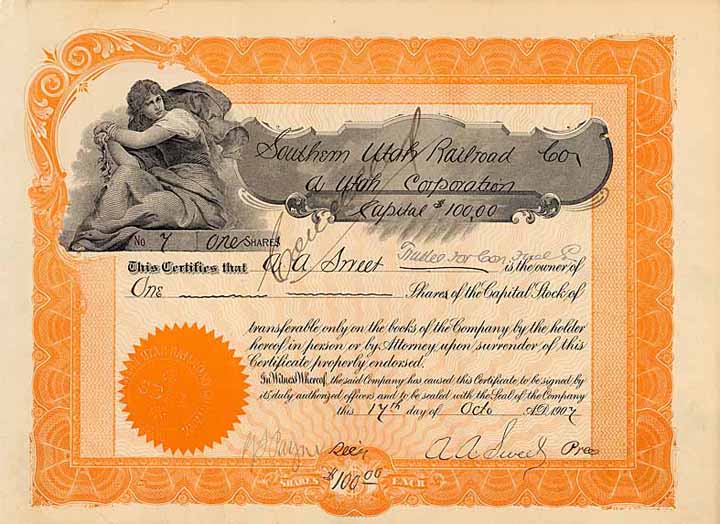 Southern Utah Railroad Co,
a Utah Corporation
Capital $100,00
No 7 One SHARES
Cancelled
This Certifies that A A Sweet Trustee for Con, is the owner of
One Shares of the Capital Stock of
transferable only on the books of the Company by the holder
hereof in person or by Attorney upon surrender of this
Certificate properly endorsed.
In Witness Whereof, the said Company has caused this Certificate to be signed by
its duly authorized officers and to be sealed with the Seal of the Company
this 17th day of Octo A.D. 1907
Payne Sec'y A A Sweet Pres
SHARES $100.00 EACH